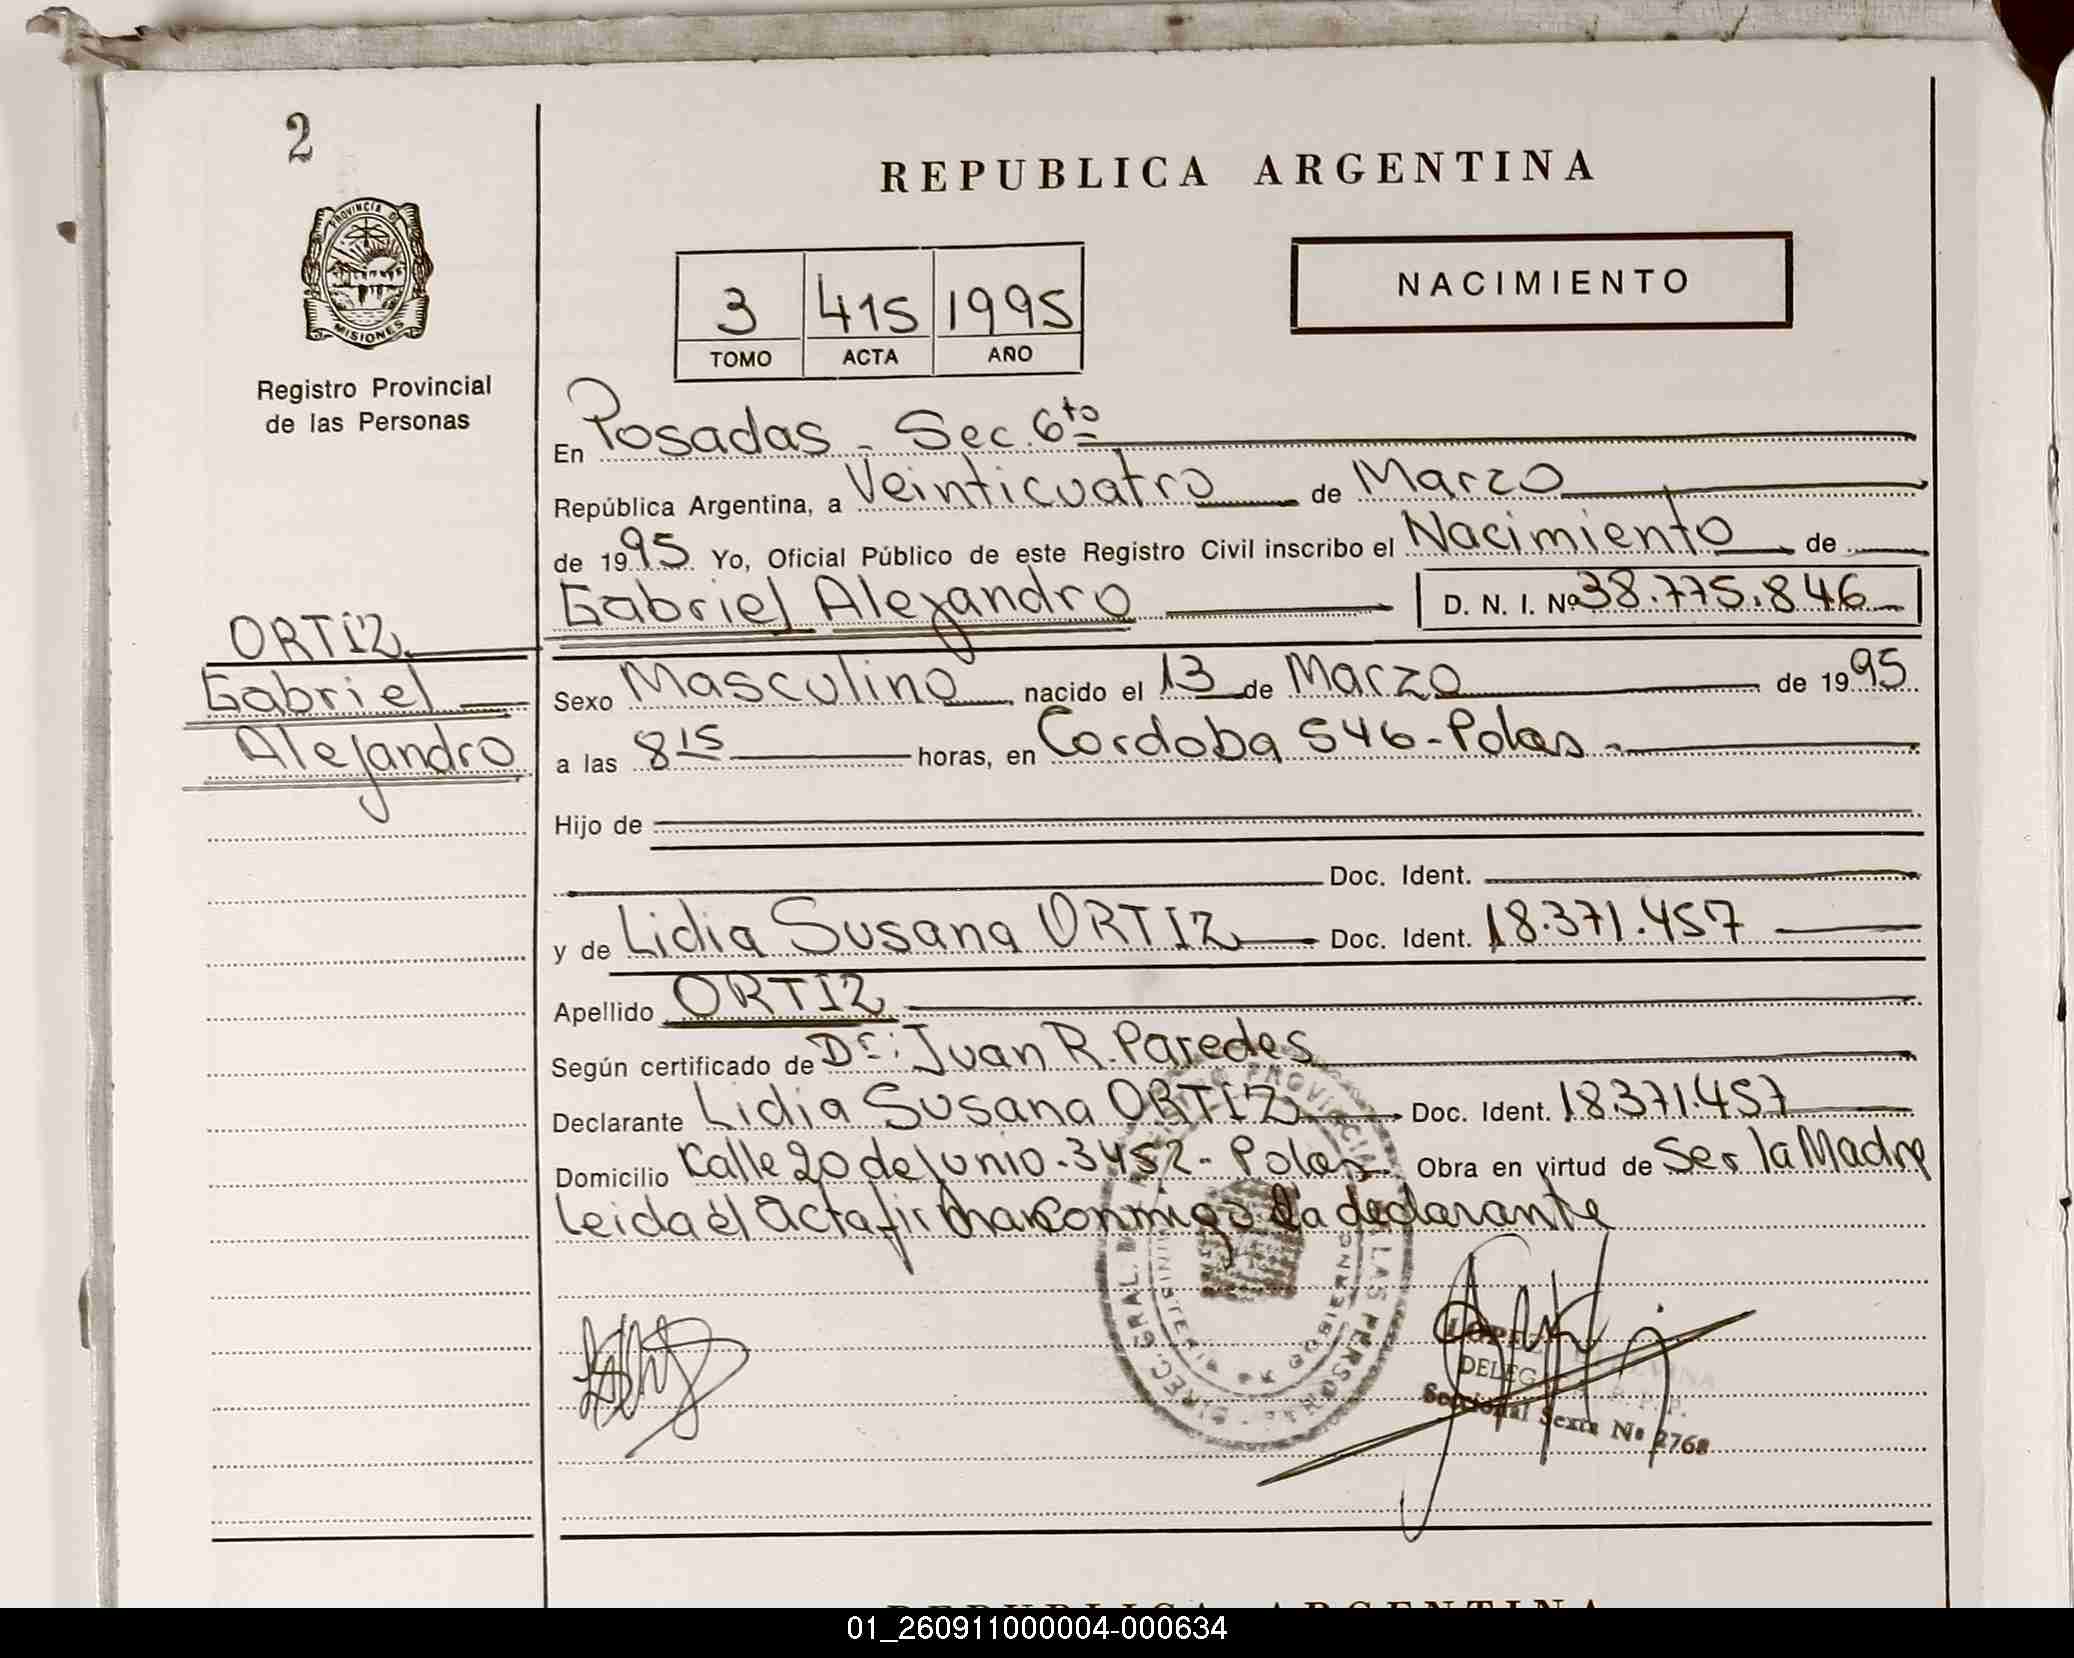 2
REPUBLICA ARGENTINA
PROVINCIA DE
MISIONES
Registro Provincial
de las Personas
3 415 1995
TOMO ACTA AÑO
NACIMIENTO
En Posadas - Sec. 6to
República Argentina, a Veinticuatro de Marzo
de 1995 Yo, Oficial Público de este Registro Civil inscribo el Nacimiento de
Gabriel Alejandro D. N. I. Nº 38.775.846
ORTIZ
Gabriel
Alejandro
Sexo Masculino nacido el 13 de Marzo de 1995
a las 8 15 horas, en Cordoba 546 - Pdas
Hijo de
Doc. Ident.
y de Lidia Susana ORTIZ Doc. Ident. 18.371.457
Apellido ORTIZ
Según certificado de Dr: Juan R. Paredes
Declarante Lidia Susana ORTIZ Doc. Ident. 18371.457
Domicilio Calle 20 de Junio - 3452 - Pdas. Obra en virtud de Ser la Madre
Leida el Acta firma conmigo la declarante
DIREC. GRAL. DEL PROVINCIAL LAS PERSONAS
MINISTERIO GOBIERNO
LOPEZ
DELEG
Seccional Sexta Nº 2768
REPUBLICA ARGENTINA
01_260911000004-000634